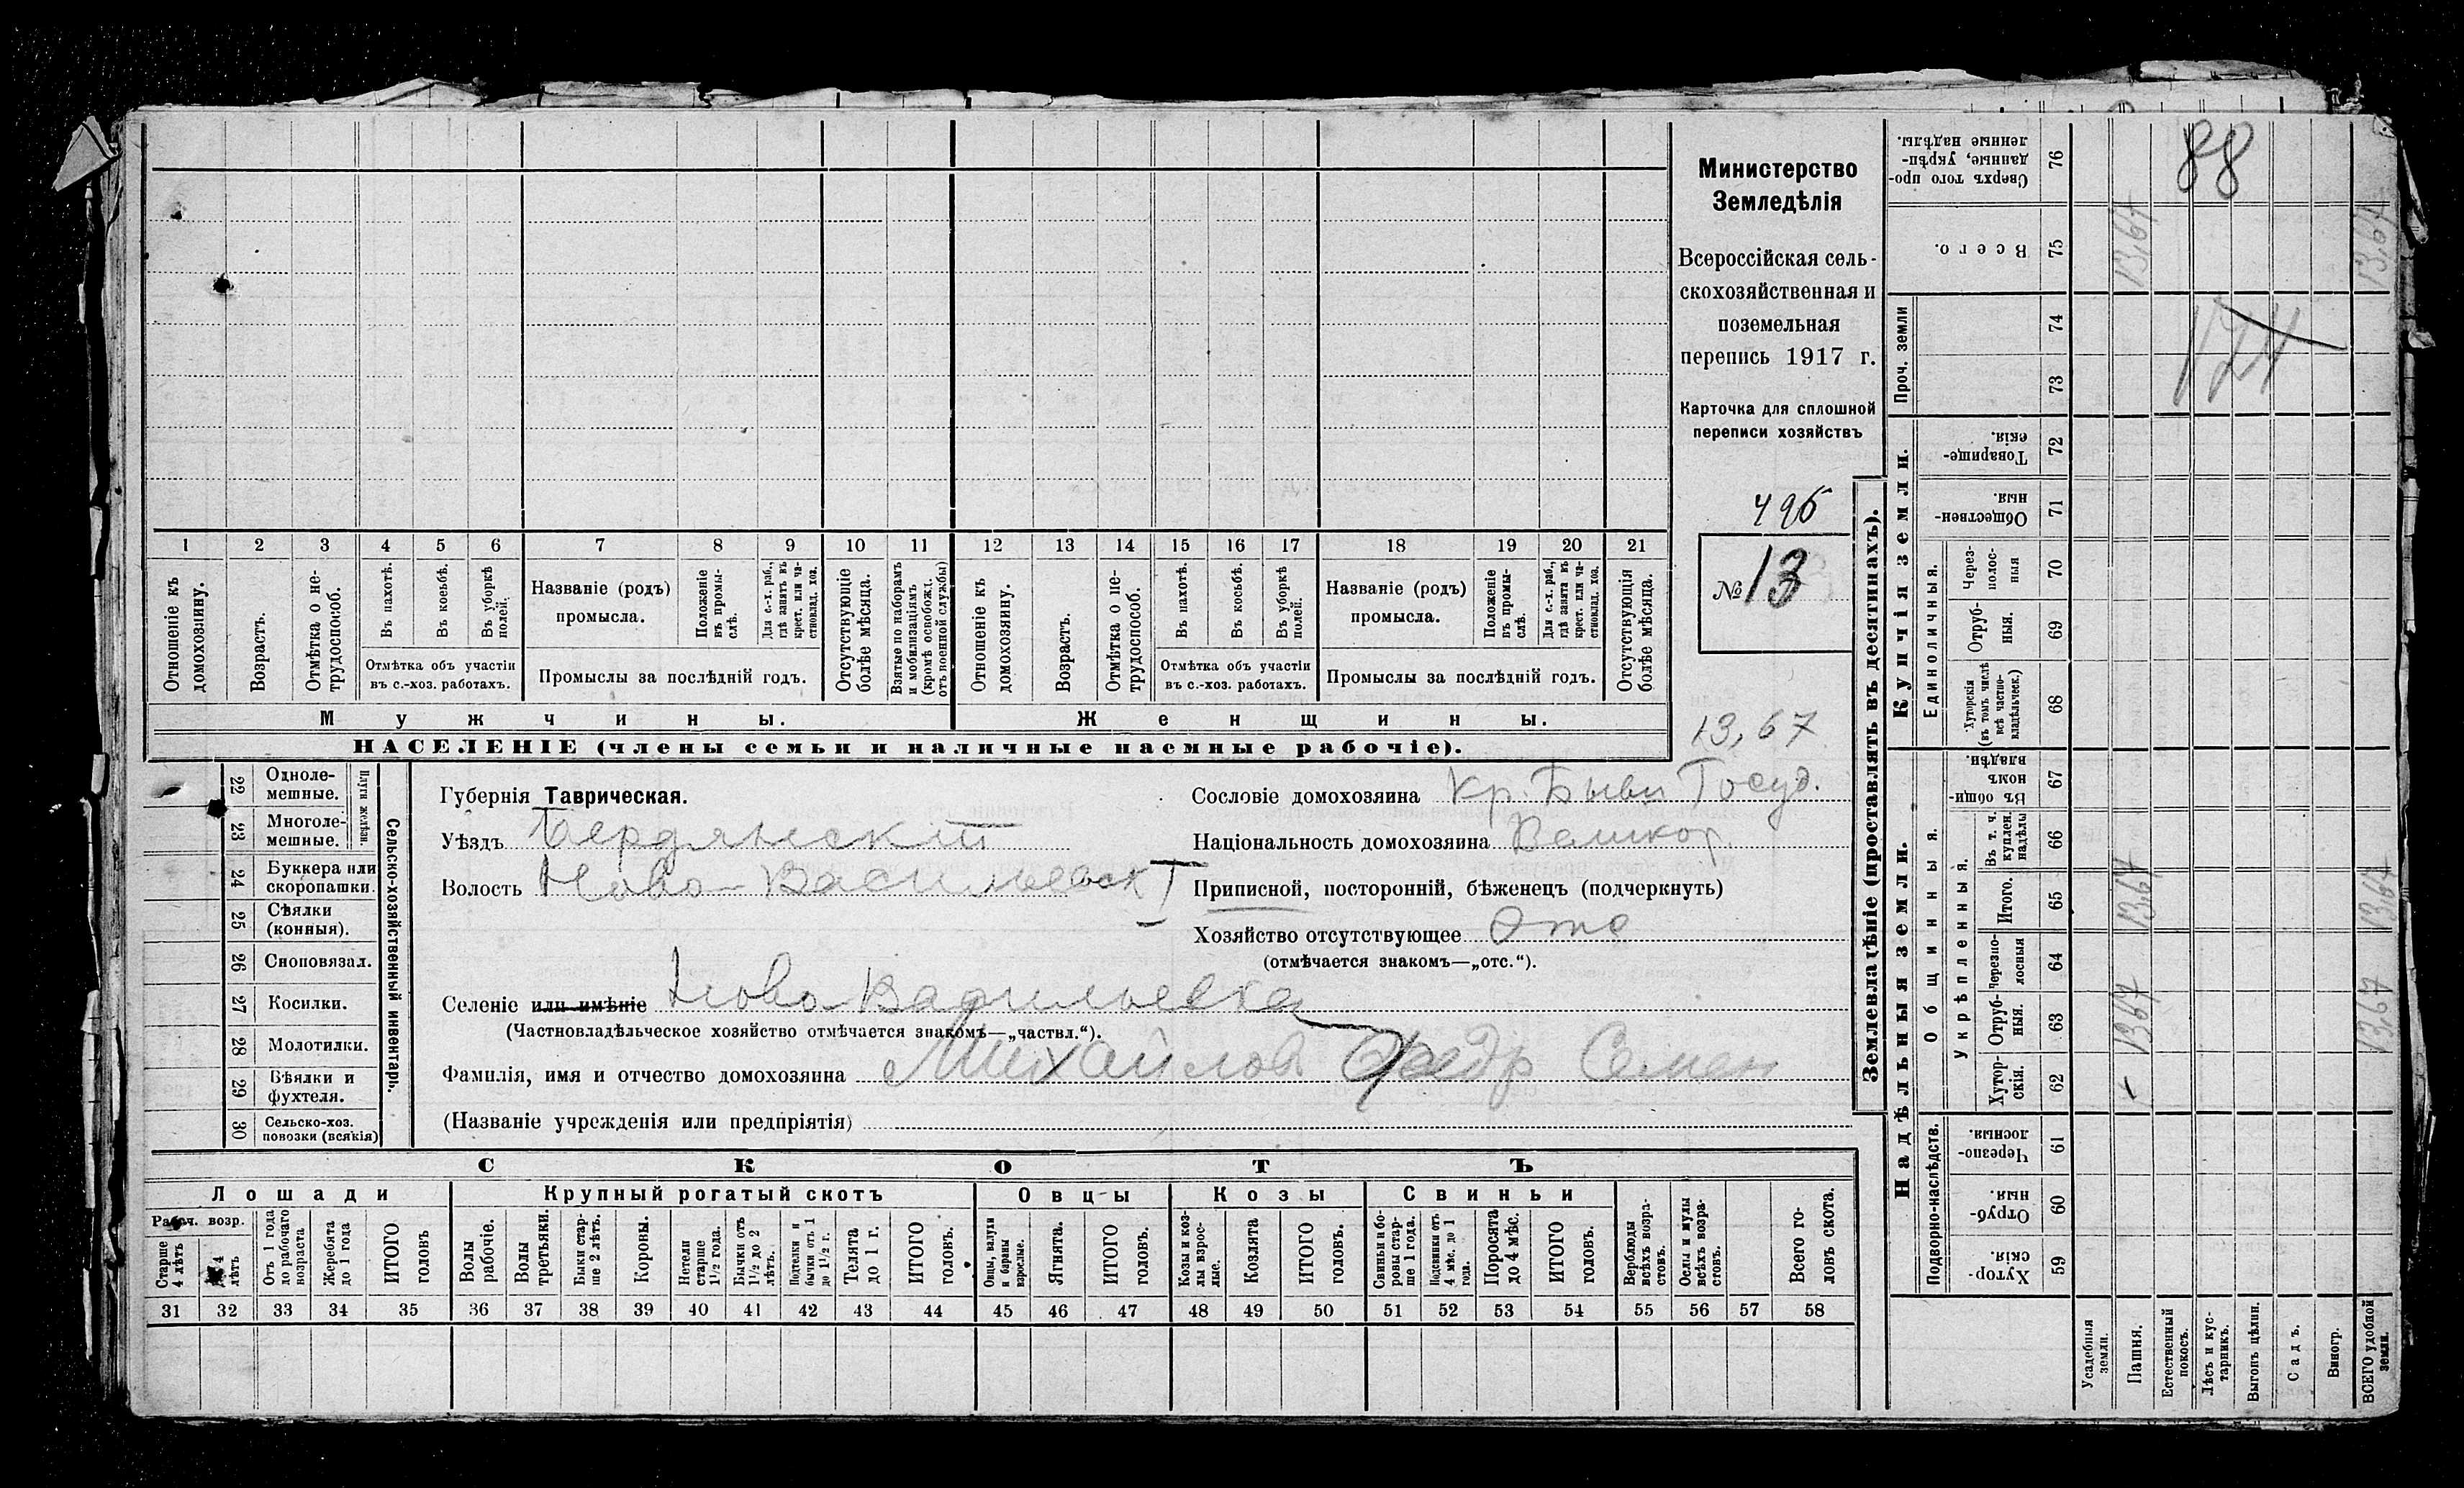 Министерство
Земледѣлія
Всероссійская сель-
скохозяйственная и
поземельная
перепись 1917 г.
Карточка для сплошной
переписи хозяйствъ
496
№ 13
13,67
1 2 3 4 5 6 7 8 9 10 11 12 13 14 15 16 17 18 19 20 21
Отношеніе къ домохозяину.
Возрастъ.
Отмѣтка о не-трудоспособ.
Въ пахотѣ.
Въ косьбѣ.
Въ уборкѣ полей.
Отмѣтка объ участіи
въ с.-хоз. работахъ.
Названіе (родъ)
промысла.
Положеніе въ промы-слѣ.
Для с.-х. раб., гдѣ занятъ въ крест. или ча-стновлад. хоз.
Промыслы за послѣдній годъ.
Отсутствующіе болѣе мѣсяца.
Взятые по наборамъ и мобилизаціямъ (кромѣ освобожд. отъ военной службы)
Отношеніе къ домохозяину.
Возрастъ.
Отмѣтка о не-трудоспособ.
Въ пахотѣ.
Въ косьбѣ.
Въ уборкѣ полей.
Отмѣтка объ участіи
въ с.-хоз. работахъ.
Названіе (родъ)
промысла.
Положеніе въ промы-слѣ.
Для с.-х. раб., гдѣ занятъ въ крест. или ча-стновлад. хоз.
Промыслы за послѣдній годъ.
Отсутствующія болѣе мѣсяца.
Мужчины.
Женщины.
НАСЕЛЕНІЕ (члены семьи и наличные наемные рабочіе).
22 Одноле-мешные.
23 Многоле-мешные.
Плуги желѣзн.
24 Буккера или скоропашки.
25 Сѣялки (конныя).
26 Сноповязал.
27 Косилки.
28 Молотилки.
29 Вѣялки и фухтеля.
30 Сельско-хоз. повозки (всякія)
Сельско-хозяйственный инвентарь.
Губернія Таврическая.
Уѣздъ Бердянскій
Волость Ново-Васильевск I
Селеніе или имѣніе Ново Васильевка
(Частновладѣльческое хозяйство отмѣчается знакомъ—„частвл.“).
Фамилія, имя и отчество домохозяина Михайлов Федр Семен
(Названіе учрежденія или предпріятія)
Сословіе домохозяина Кр. Бывш Госуд.
Національность домохозяина Великор.
Приписной, посторонній, бѣженецъ (подчеркнуть)
Хозяйство отсутствующее Отс
(отмѣчается знакомъ—„отс.“).
СКОТЪ
Лошади
Крупный рогатый скотъ
Овцы
Козы
Свиньи
Рабоч. возр.
Старше 4 лѣтъ
До 4 лѣтъ
Отъ 1 года до рабочаго возраста
Жеребята до 1 года
ИТОГО головъ
Волы рабочіе.
Волы третьяки.
Быки стар-ше 2 лѣтъ.
Коровы.
Нетели старше 1½ года.
Бычки отъ 1½ до 2 лѣтъ.
Подтелки и бычки отъ 1 до 1½ г.
Телята до 1 г.
ИТОГО головъ.
Овцы, валухи и бараны взрослые.
Ягнята.
ИТОГО головъ.
Козы и коз-лы взрос-лые.
Козлята
ИТОГО головъ.
Свиньи и бо-ровы стар-ше 1 года.
Подсвинки отъ 4 мѣс. до 1 года.
Поросята до 4 мѣс.
ИТОГО головъ.
Верблюды всѣхъ возра-стовъ.
Ослы и мулы всѣхъ возра-стовъ.
Всего го-ловъ скота.
31 32 33 34 35 36 37 38 39 40 41 42 43 44 45 46 47 48 49 50 51 52 53 54 55 56 57 58
Землевладѣніе (проставлять въ десятинахъ).
Купчія земли.
Надѣльныя земли.
Проч. земли
Единоличныя.
Общинныя.
Укрѣпленныя.
Подворно-наслѣдств.
Сверхъ того про-данные, укрѣп-ленные надѣлы. 76
Всего. 75
74
73
Товарище-скія. 72
Обществен-ныя. 71
Через-полос-ныя 70
Отруб-ныя. 69
Хуторскія (въ томъ числѣ всѣ частно-владѣльческ.) 68
Въ общи-номъ владѣн. 67
Въ т. ч. куплен. надѣлы 66
Итого. 65
Черезпо-лосныя 64
Отруб-ныя. 63
Хутор-скія. 62
Черезпо-лосныя. 61
Отруб-ныя. 60
Хутор-скія. 59
Усадебныя земли.
Пашня.
Естественный покосъ.
Лѣсъ и кус-тарникъ.
Выгонъ цѣлин.
Садъ.
Виногр.
ВСЕГО удобной земли.
88
13,67
13,67
174
13,67
13,67
1367
13,67